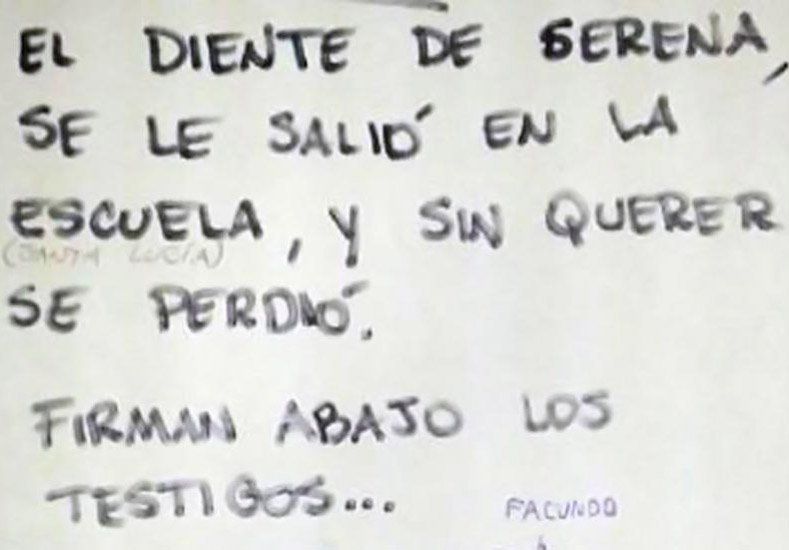 EL DIENTE DE SERENA,
SE LE SALIÓ EN LA
ESCUELA, Y SIN QUERER
(SANTA LUCÍA)
SE PERDIÓ.
FIRMAN ABAJO LOS
TESTIGOS...
FACUNDO